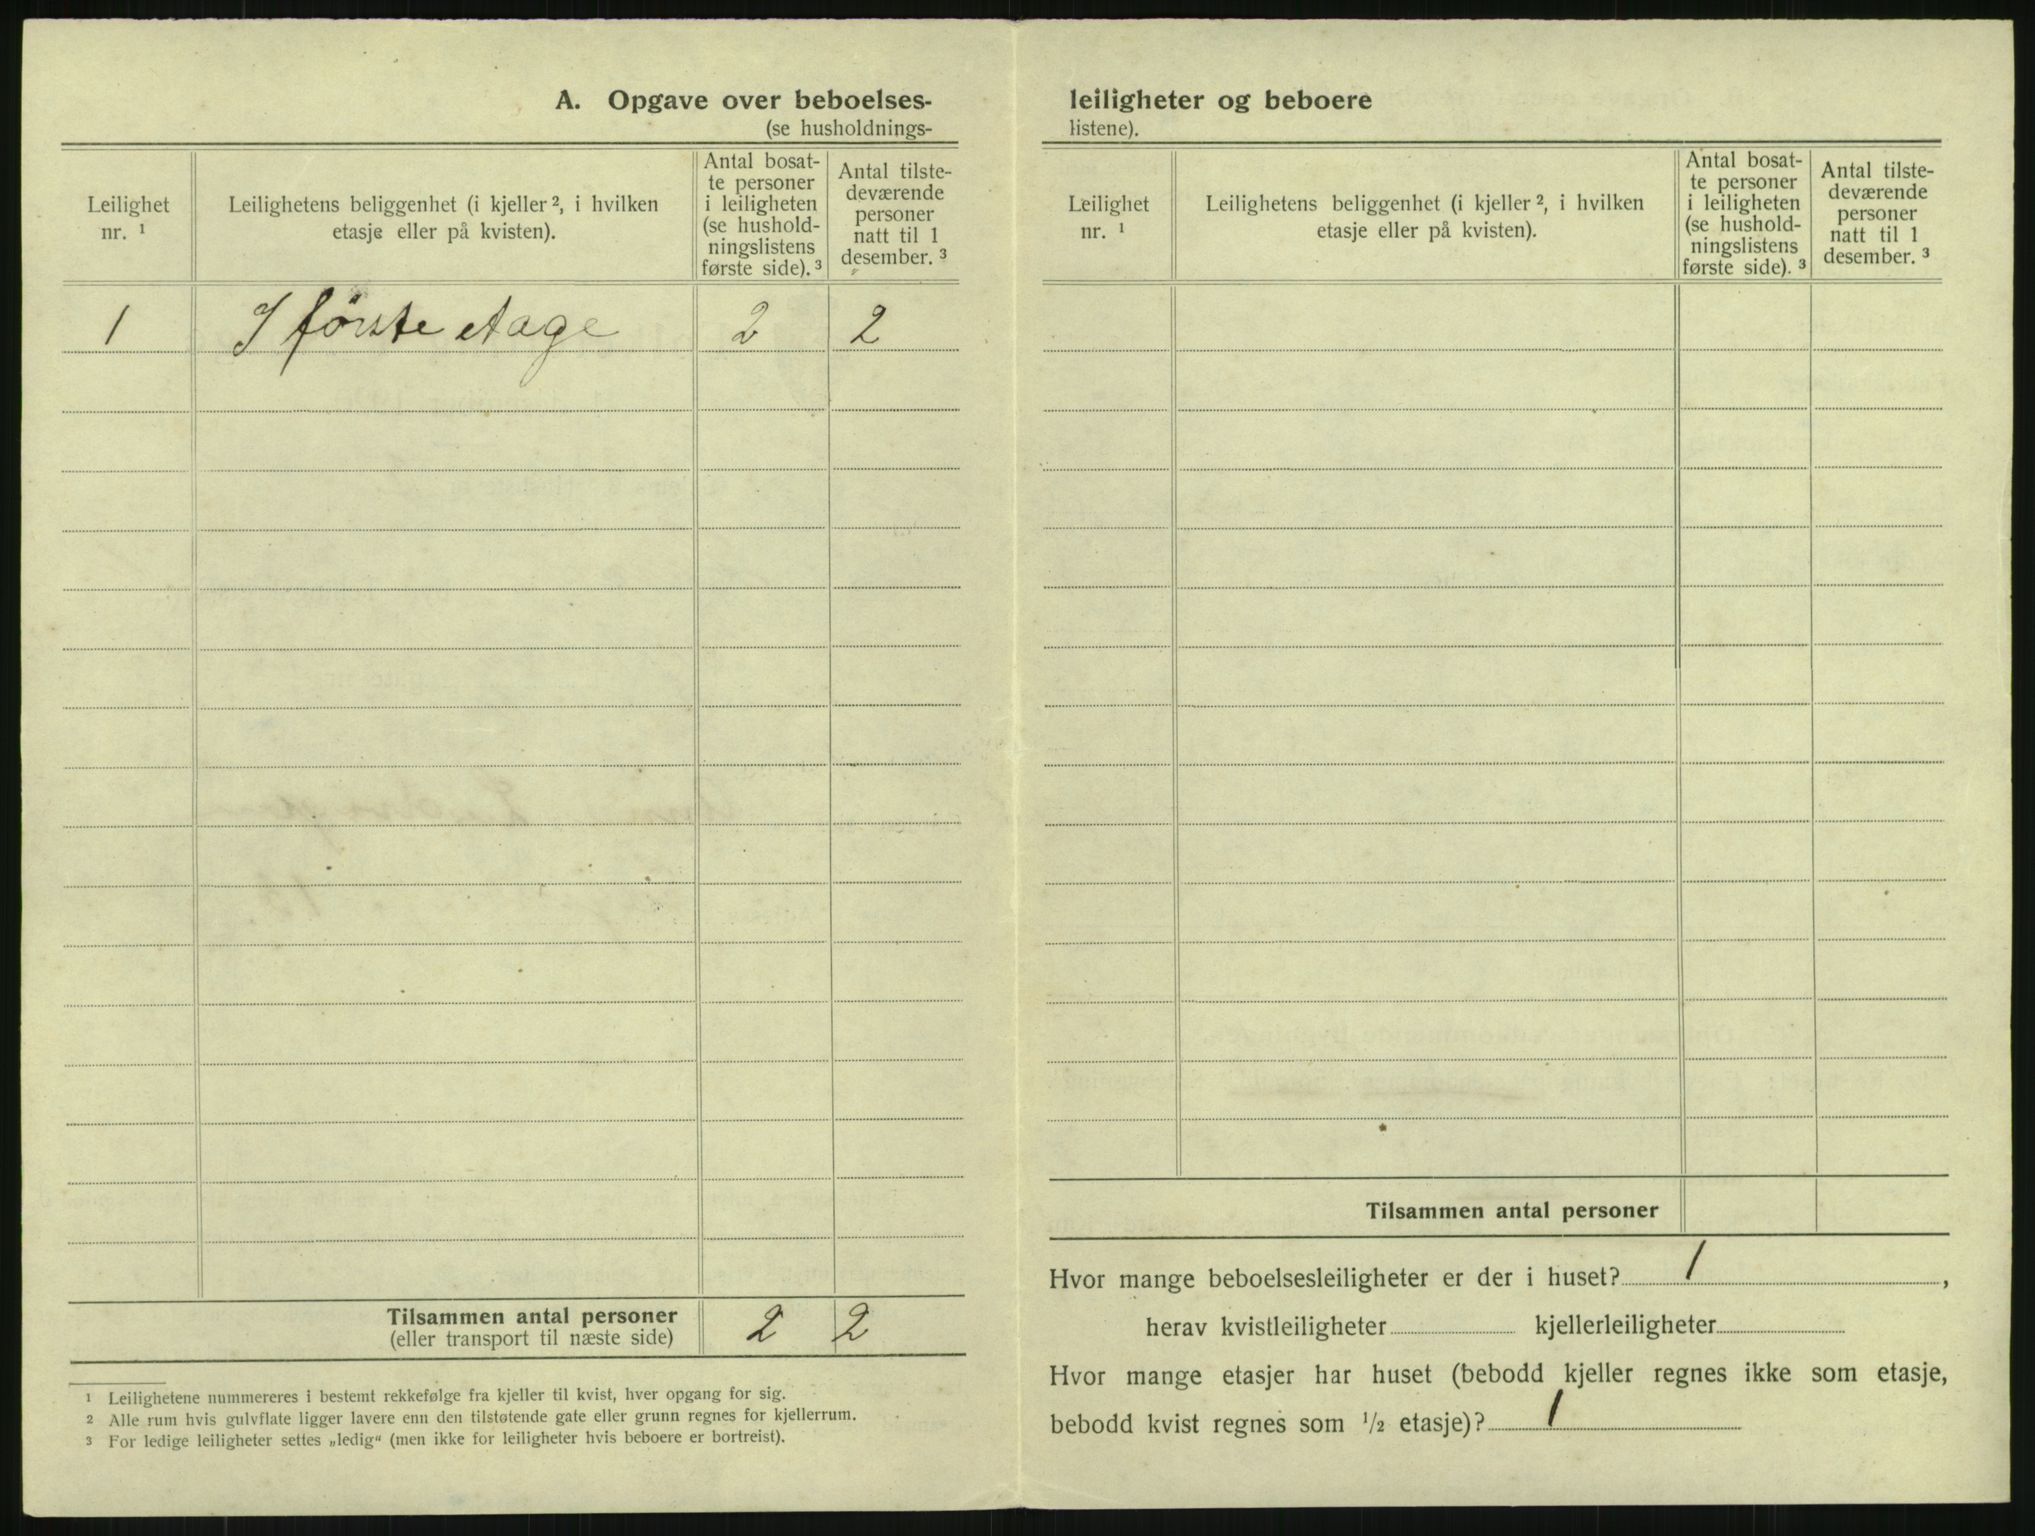 A. Opgave over beboelses-
(se husholdnings-
Leilighet
nr. ¹
Leilighetens beliggenhet (i kjeller ², i hvilken
etasje eller på kvisten).
Antal bosat-
te personer
i leiligheten
(se hushold-
ningslistens
første side). ³
Antal tilste-
deværende
personer
natt til 1
desember. ³
1 I förste etage 2 2
Tilsammen antal personer 2 2
(eller transport til næste side)
¹ Leilighetene nummereres i bestemt rekkefølge fra kjeller til kvist, hver opgang for sig.
² Alle rum hvis gulvflate ligger lavere enn den tilstøtende gate eller grunn regnes for kjellerrum.
³ For ledige leiligheter settes „ledig“ (men ikke for leiligheter hvis beboere er bortreist).
leiligheter og beboere
listene).
Leilighet
nr. ¹
Leilighetens beliggenhet (i kjeller ², i hvilken
etasje eller på kvisten).
Antal bosat-
te personer
i leiligheten
(se hushold-
ningslistens
første side). ³
Antal tilste-
deværende
personer
natt til 1
desember. ³
Tilsammen antal personer
Hvor mange beboelsesleiligheter er der i huset? 1 ,
herav kvistleiligheter kjellerleiligheter
Hvor mange etasjer har huset (bebodd kjeller regnes ikke som etasje,
bebodd kvist regnes som ½ etasje)? 1